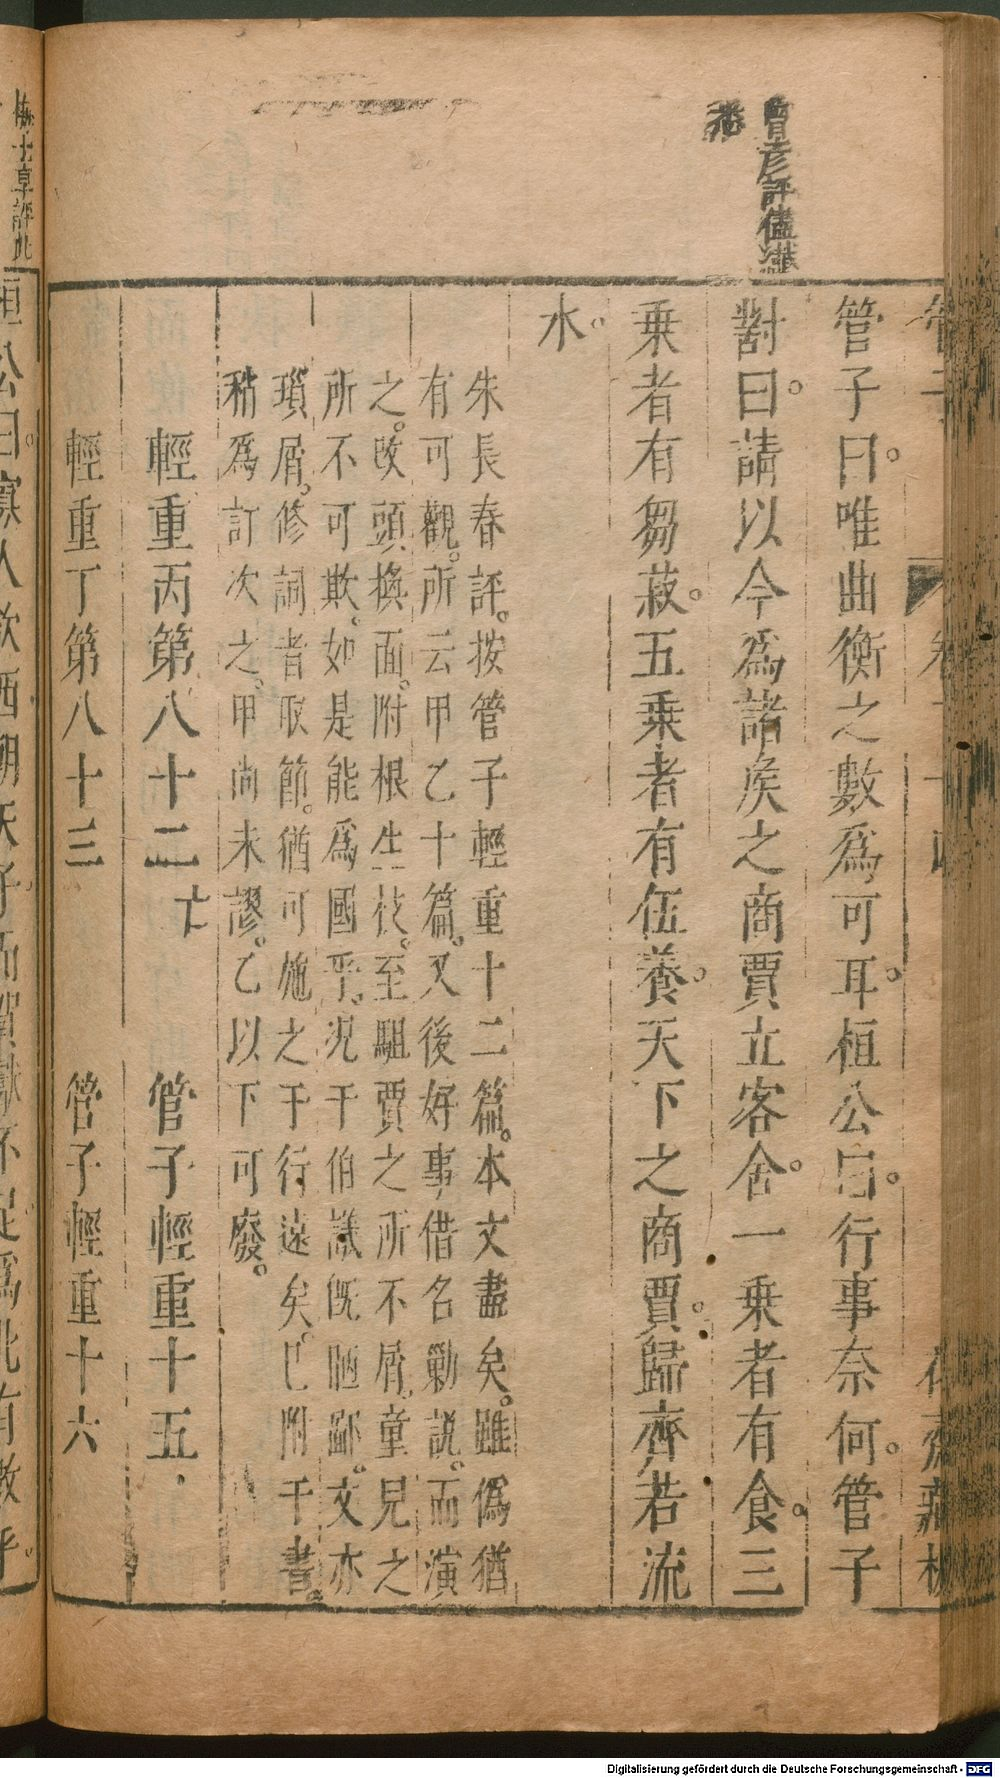 管子曰。唯曲衡之數爲可耳。桓公曰。行事奈何。管子
對曰。請以令爲諸侯之商賈立客舍。一乘者有食。三
乘者有芻菽。五乘者有伍養。天下之商賈。歸齊若流
水。
朱長春評。按管子輕重十二篇。本文盡矣。雖僞猶
有可觀。所云甲乙十篇。又後好事借名勦説。而演
之。改頭換面。附根生枝。至駔賈之所不屑。童兒之
所不可欺。如是能爲國乎。况于伯議既陋鄙。文亦
瑣屑。修詞者取節。猶可施之于行遠矣。已附千書。
稍爲訂次之。甲尚未謬。乙以下可廢。
輕重丙第八十二亡 管子輕重十五
輕重丁第八十三 管子輕重十六
桓公曰。寡人欲西朝天子而賀獻不足爲此有數乎。
Digitalisierung gefördert durch die Deutsche Forschungsgemeinschaft - DFG